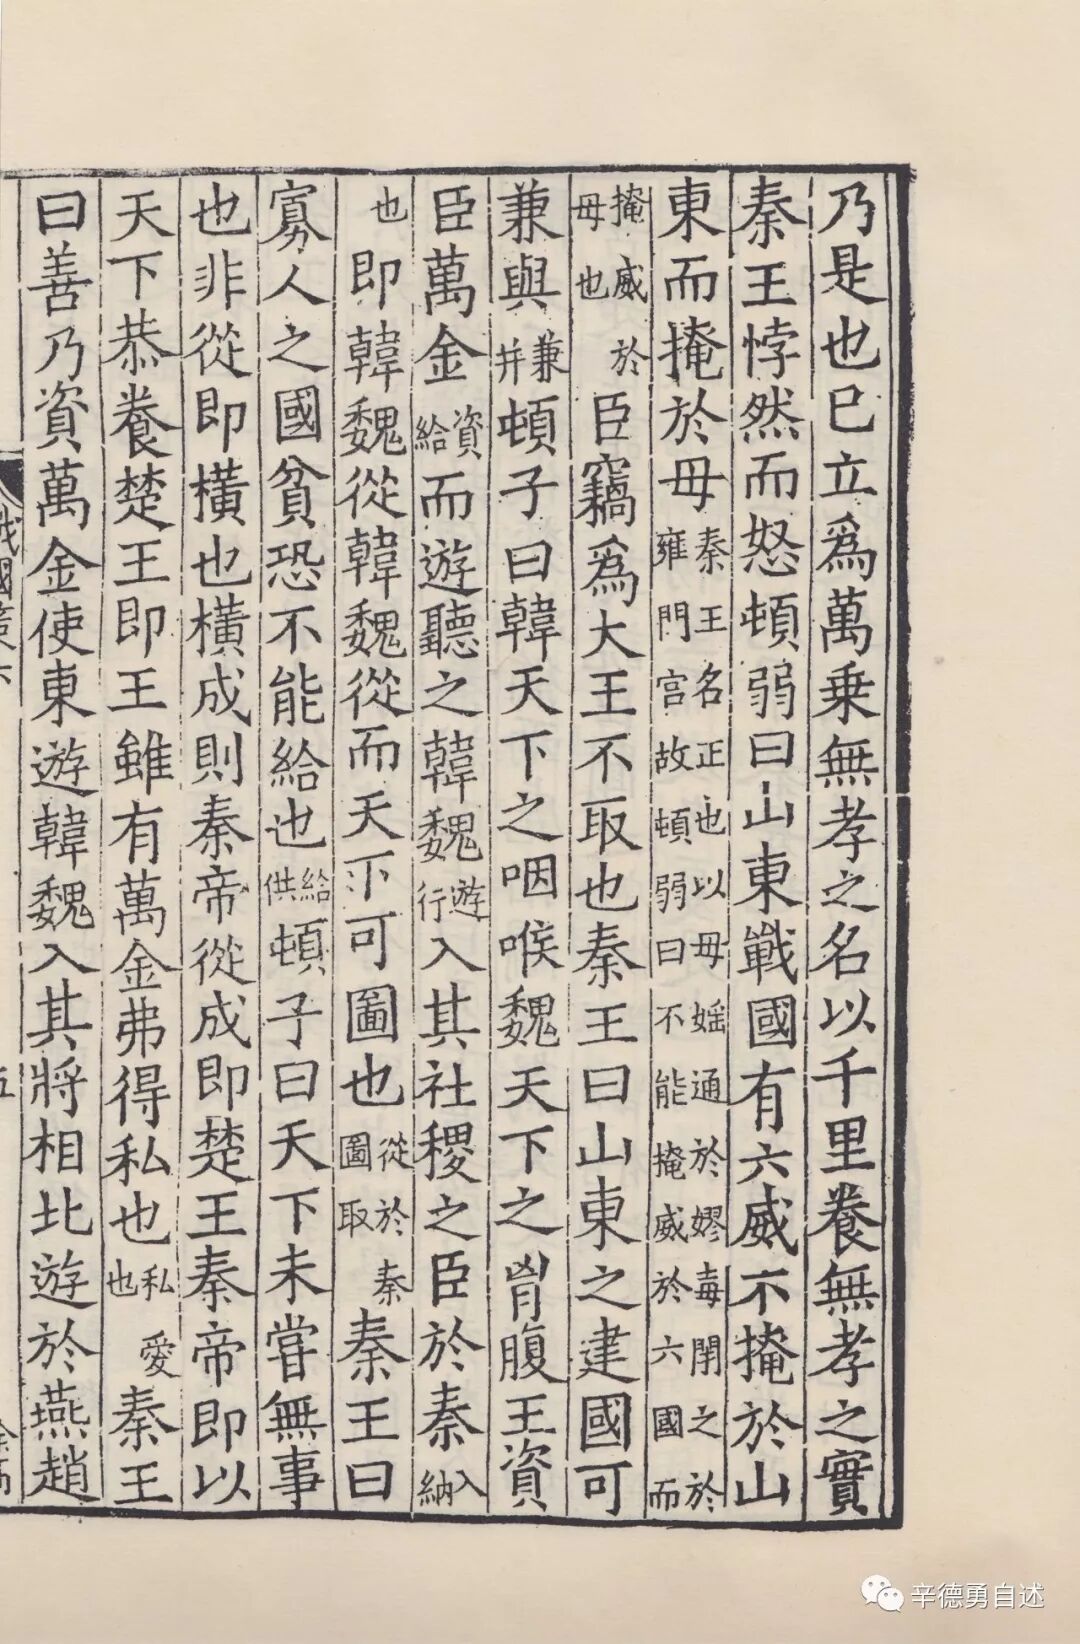 乃是也已立爲萬乗無孝之名以千里養無孝之實
秦王悖然而怒頓弱曰山東戰國有六威不掩於山
東而掩於母秦王名正也以母媱通於嫪毐閉之於雍門宫故頓弱曰不能掩威於六國而
掩威於母也臣竊爲大王不取也秦王曰山東之建國可
兼與兼并頓子曰韓天下之咽喉魏天下之胷腹王資
臣萬金資給而遊聽之韓魏遊行入其社稷之臣於秦入納
也即韓魏從韓魏從而天下可圖也從於秦圖取秦王曰
寡人之國貧恐不能給也給供頓子曰天下未甞無事
也非從即橫也橫成則秦帝從成即楚王秦帝即以
天下恭養楚王即王雖有萬金弗得私也私愛也秦王
曰善乃資萬金使東遊韓魏入其將相北遊於燕趙
戰國策六
五
辛德勇自述